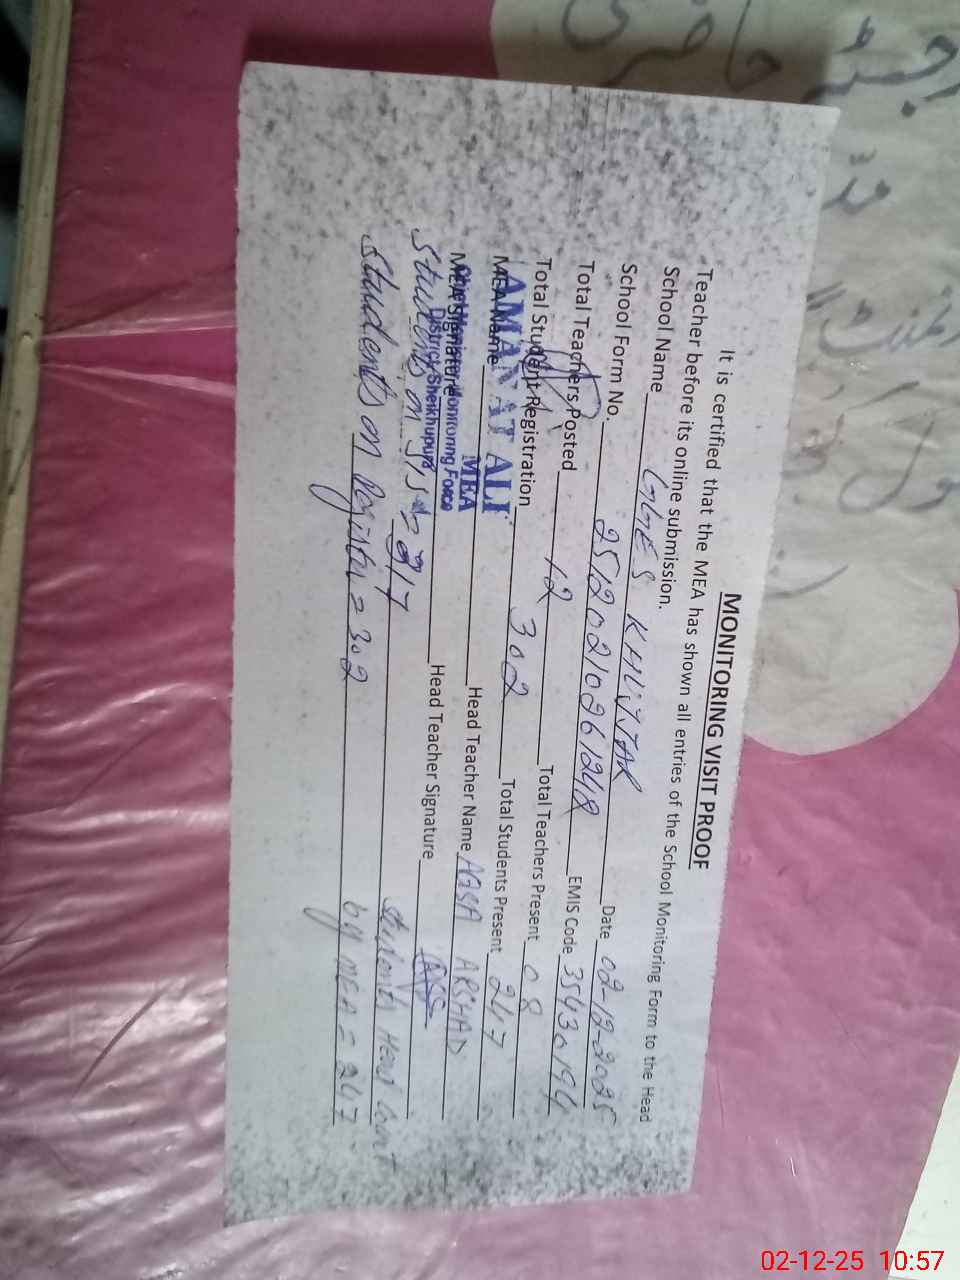 MONITORING VISIT PROOF
It is certified that the MEA has shown all entries of the School Monitoring Form to the Head
Teacher before its online submission.
School Name GGES KHUJJAR Date 02-12-2025
School Form No. 2512021026124 EMIS Code 35430194
Total Teachers Posted 12 Total Teachers Present 08
Total Student Registration 302 Total Students Present 247
MEA Name Head Teacher Name AQSA ARSHAD
AMANAT ALI
MEA
MEA Signature Head Teacher Signature
Monitoring Force
District Sheikhupura
Students on SIS = 317 Students Head Count
Students on Register = 302 by MEA = 247
رجسٹر حاضری
02-12-25 10:57